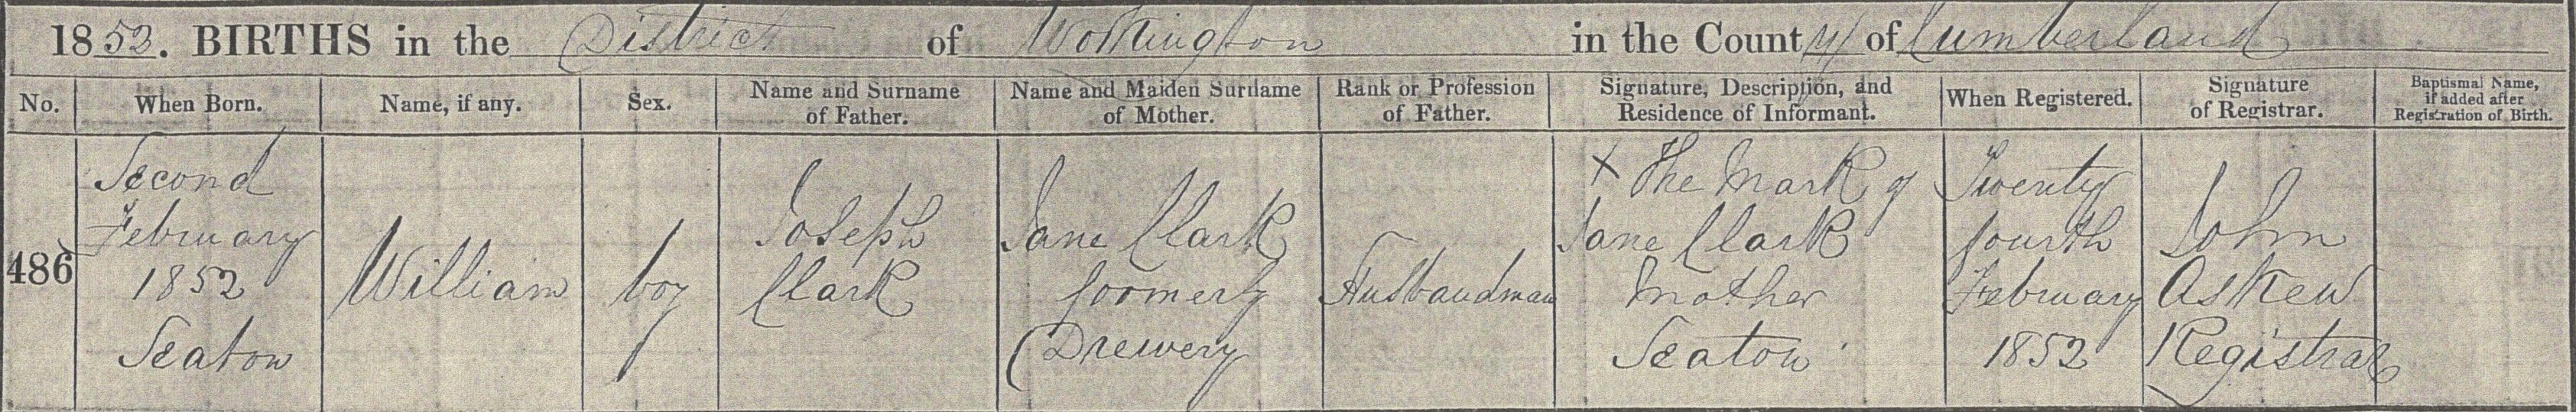 1852. BIRTHS in the District of Workington in the County of Cumberland
No. When Born. Name, if any. Sex. Name and Surname of Father. Name and Maiden Surname of Mother. Rank or Profession of Father. Signature, Description, and Residence of Informant. When Registered. Signature of Registrar. Baptismal Name, if added after Registration of Birth.
486
Second
February
1852
Seaton
William
boy
Joseph
Clark
Jane Clark
formerly
Drewery
Husbandman
X The Mark of
Jane Clark
Mother
Seaton
Twenty
fourth
February
1852
John
Askew
Registrar